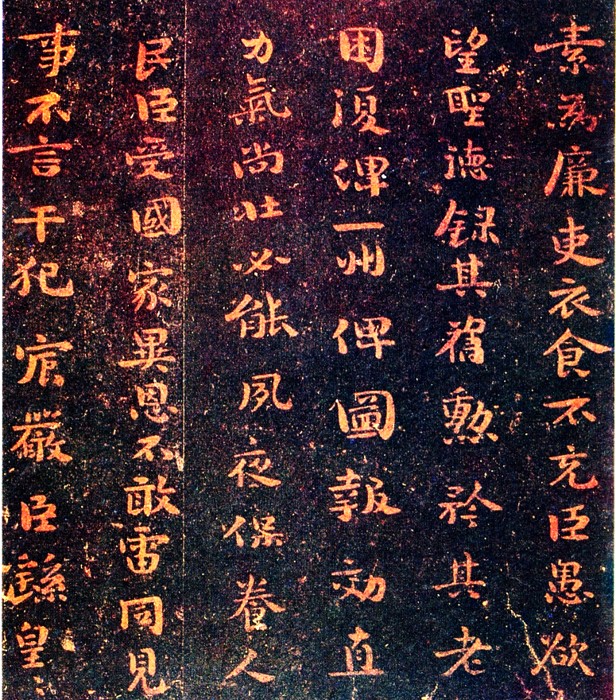 素為廉吏衣食不充臣愚欲
望聖德錄其舊勳矜其老
困復俾一州俾圖報效直
力氣尚壯必能夙夜保養人
民臣受國家異恩不敢雷同見
事不言干犯宸嚴臣繇皇